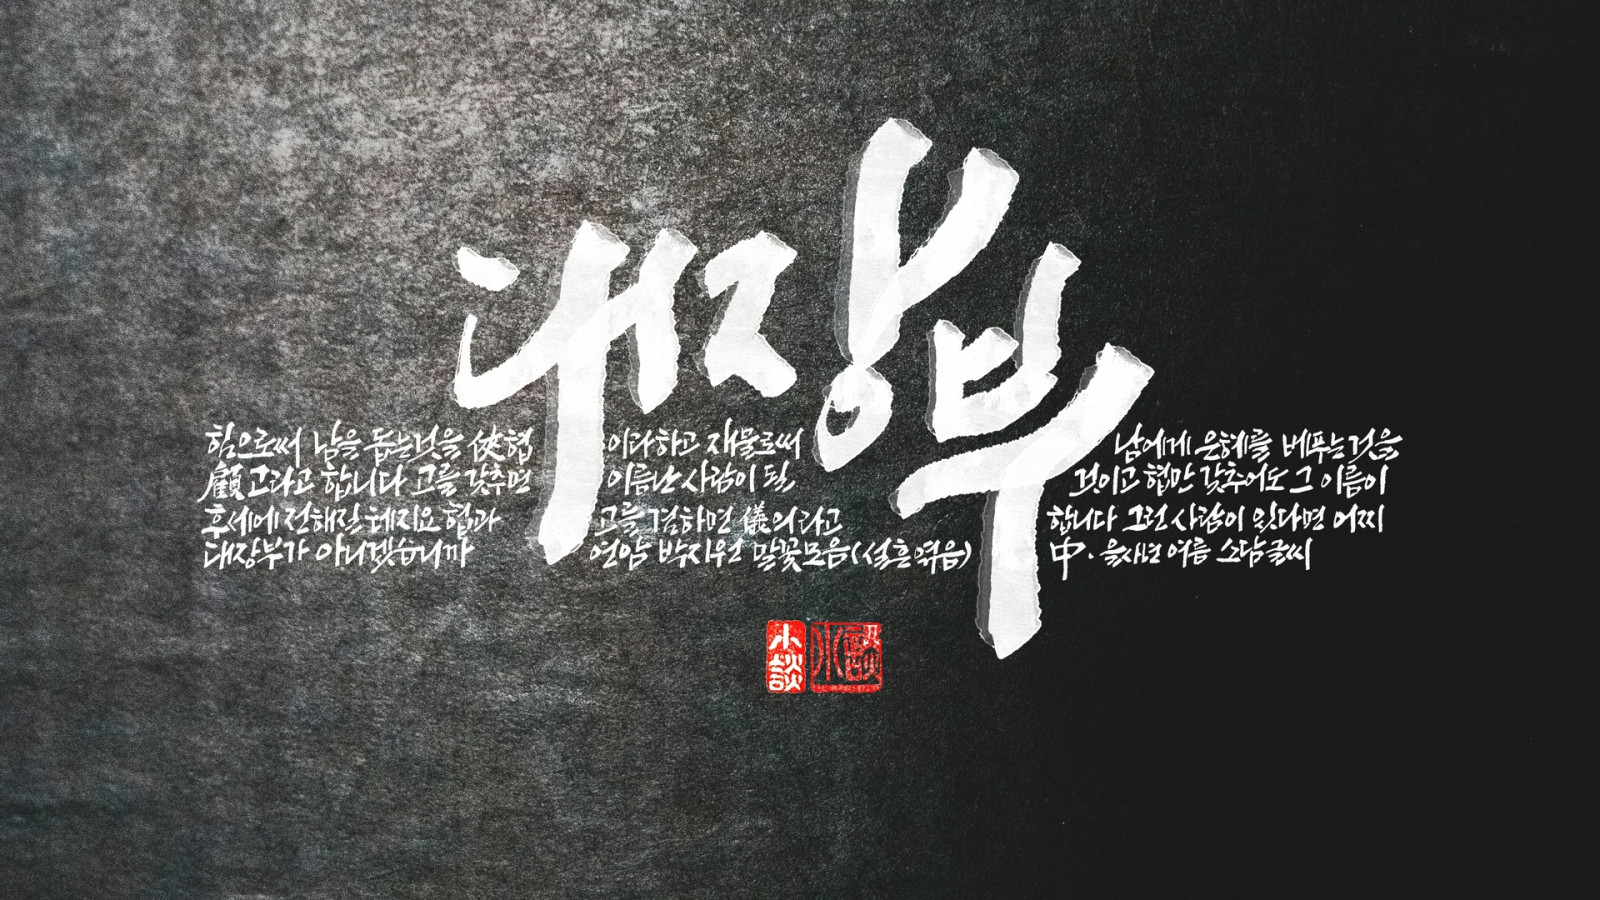 대장부
힘으로써 남을 돕는것을 俠협이라하고 재물로써 남에게 은혜를 베푸는것을
顧고라고 합니다 고를 갖추면 이름난 사람이 될 것이고 협만 갖추어도 그 이름이
후세에 전해질 테지요 협과 고를 겸하면 儀의라고 합니다 그런 사람이 있다면 어찌
대장부가 아니겠습니까 연암 박지원 말꽃모음(설흔엮음) 中. 을사년 여름 소담글씨
小談 小談